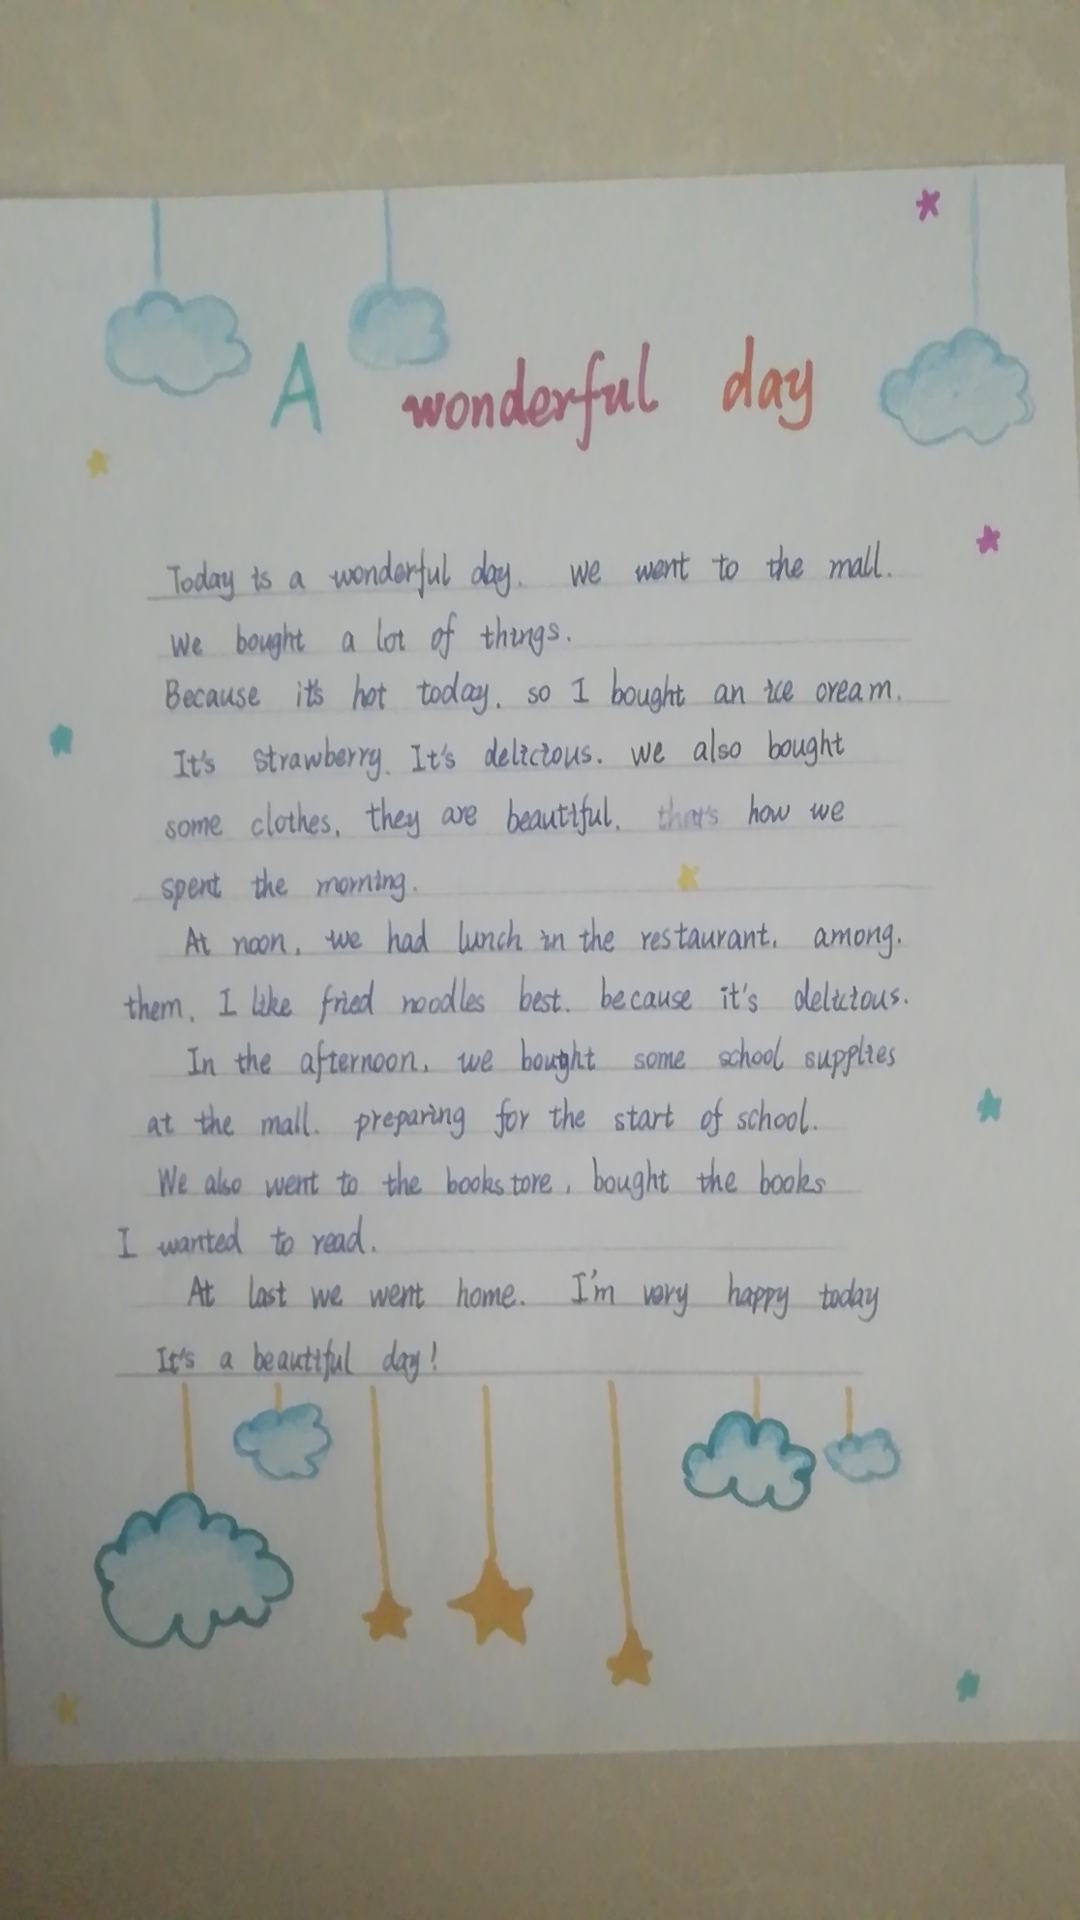 A wonderful day
Today is a wonderful day. we went to the mall.
We bought a lot of things.
Because it's hot today, so I bought an ice cream.
It's strawberry. It's delicious. we also bought
some clothes, they are beautiful. that's how we
spent the morning.
At noon, we had lunch in the restaurant. among.
them, I like fried noodles best. because it's delicious.
In the afternoon, we bought some school supplies
at the mall. preparing for the start of school.
We also went to the bookstore, bought the books
I wanted to read.
At last we went home. I'm very happy today
It's a beautiful day!